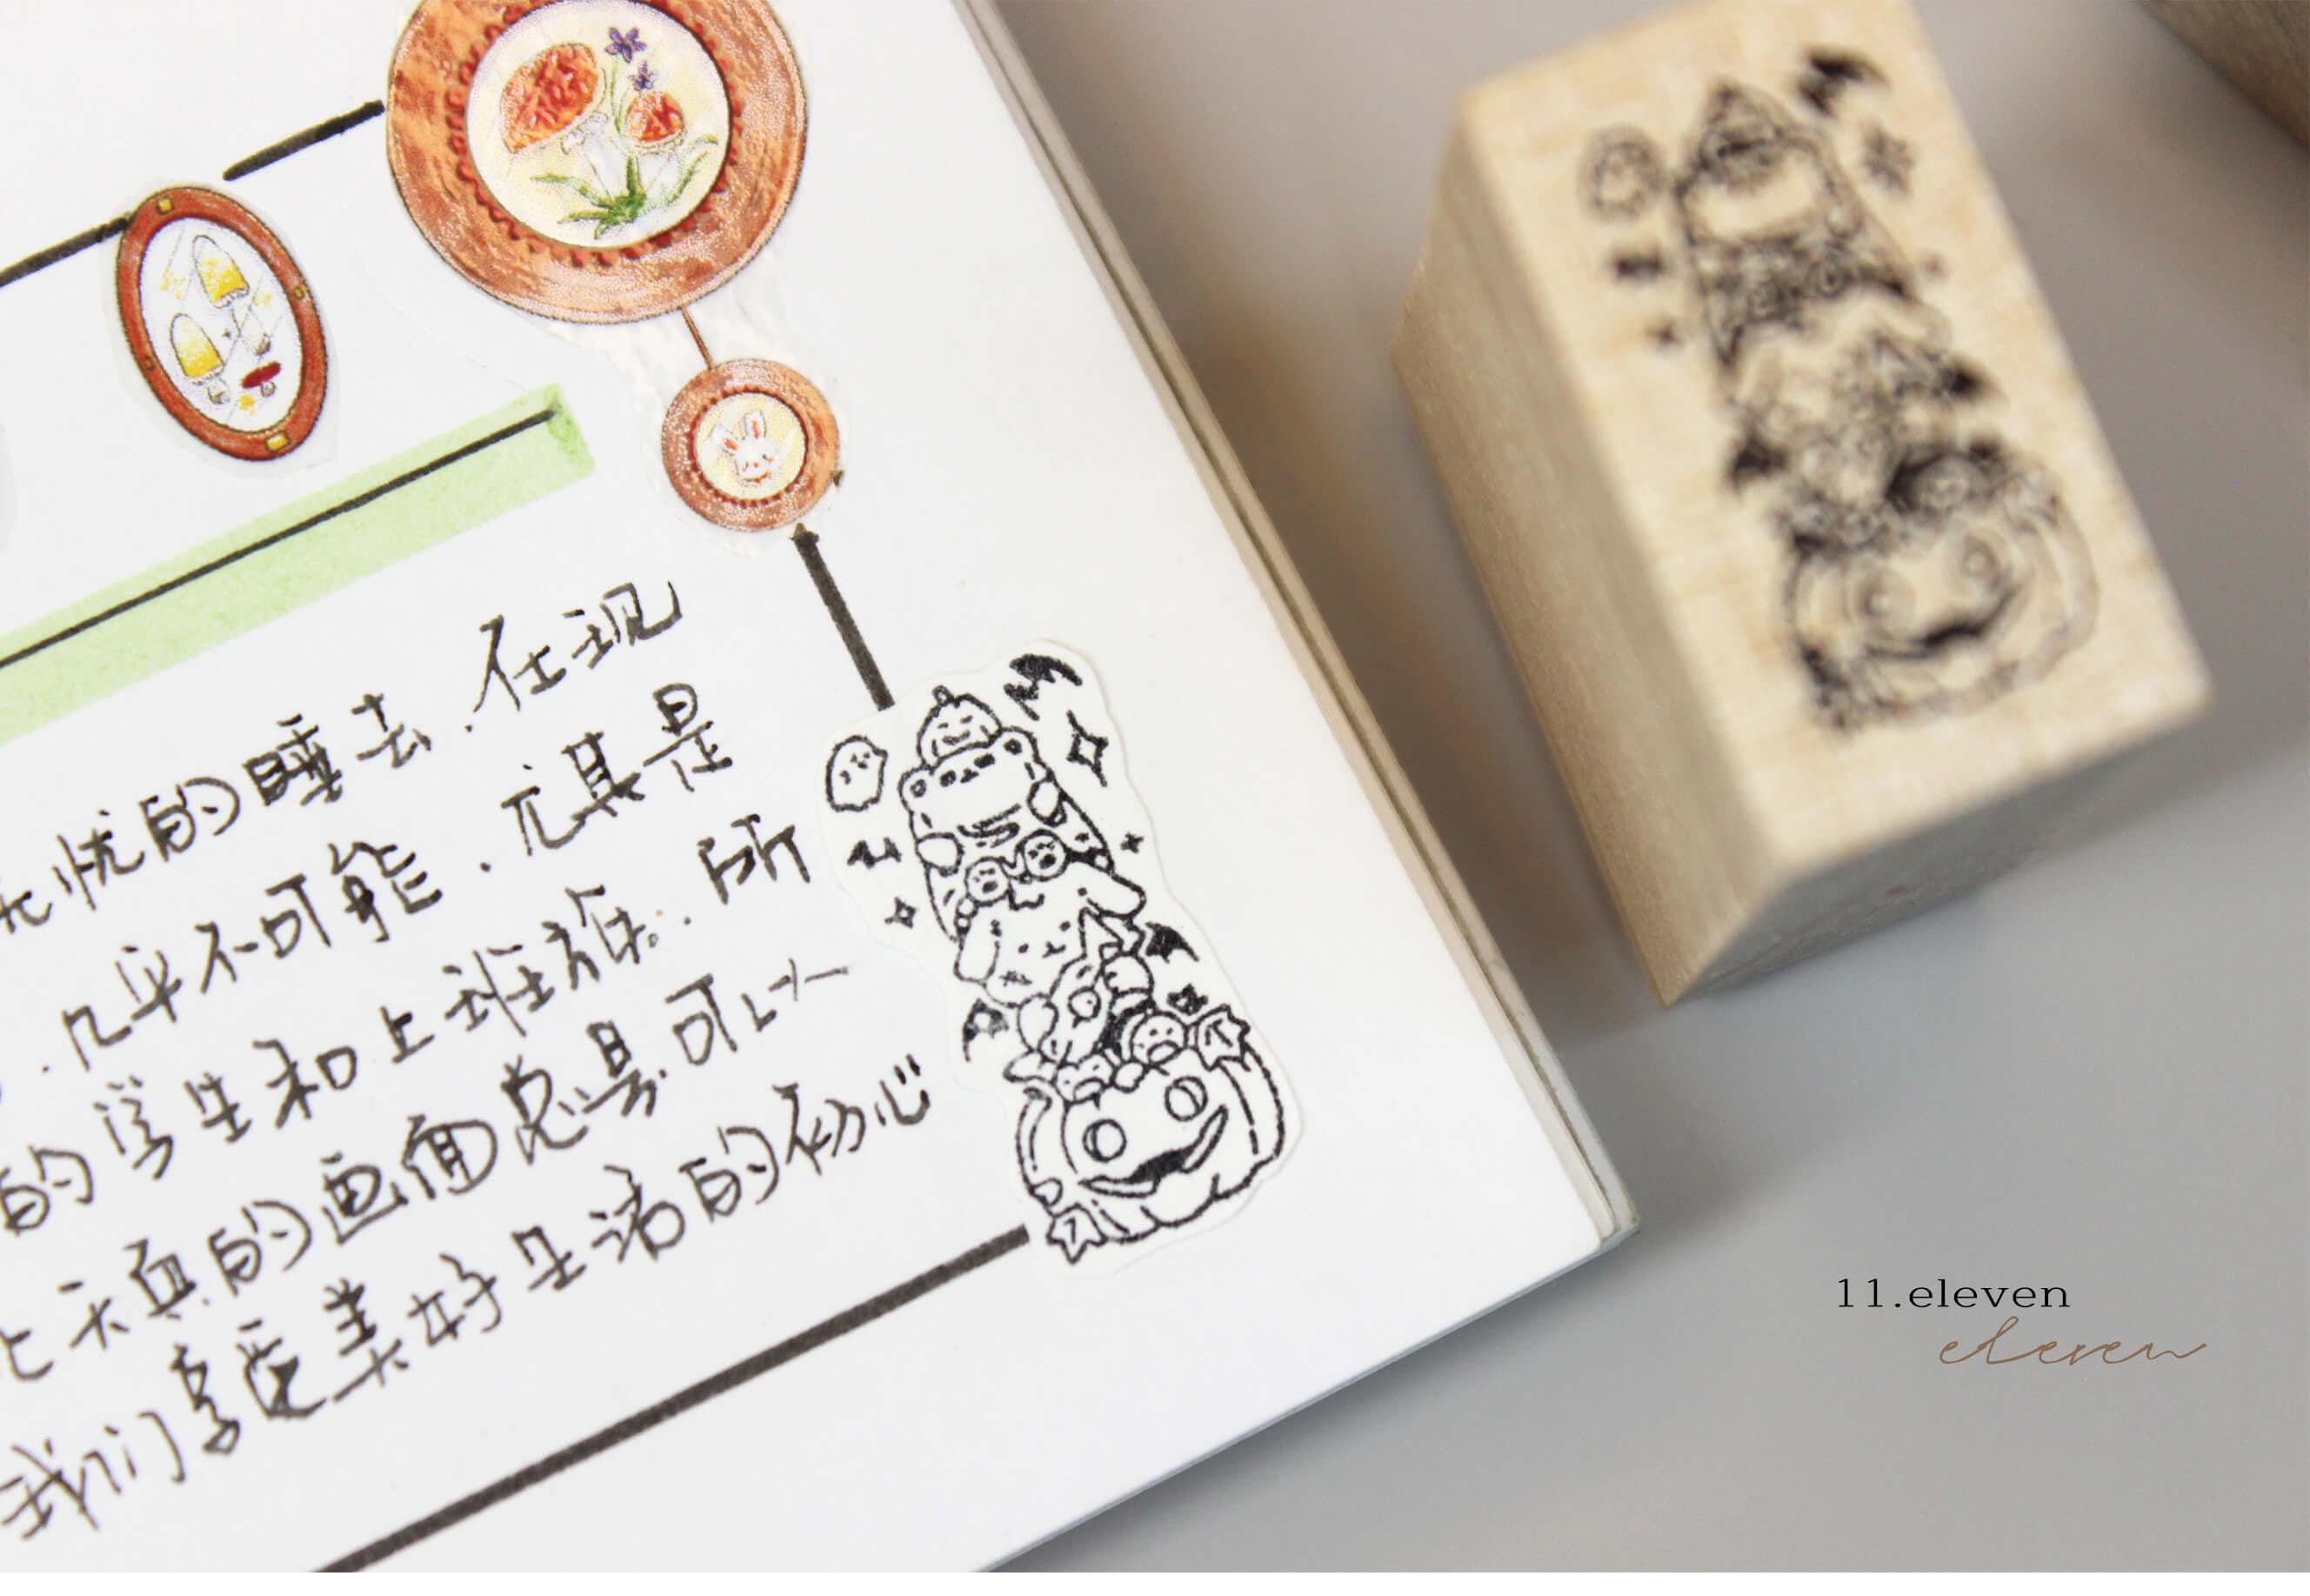 无忧的睡去.在现
.几乎不可能.尤其是
的学生和上班族.所
上天真的画面总是可以一
我们享受美好生活的初心
11.eleven
eleven